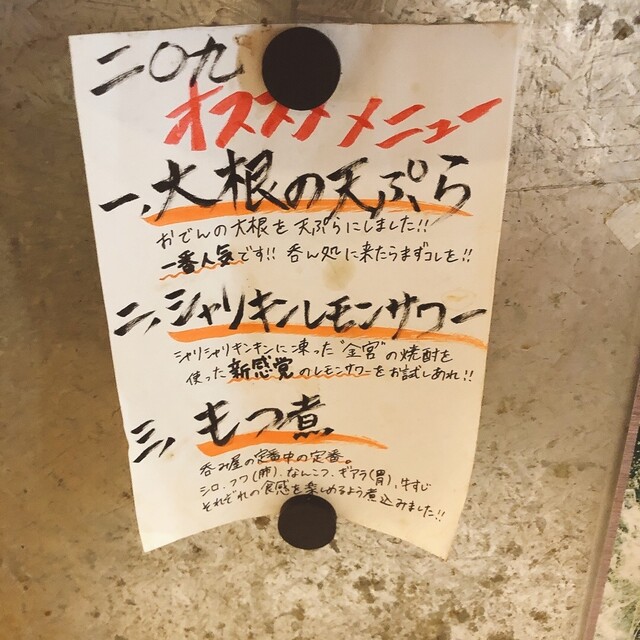 二〇九
オススメメニュー
一、大根の天ぷら
おでんの大根を天ぷらにしました!!
一番人気です!! 呑ん処に来たらまずコレを!!
二、シャリキンレモンサワー
シャリシャリキンキンに凍った"金宮"の焼酎を
使った新感覚のレモンサワーをお試しあれ!!
三、もつ煮
呑み屋の定番中の定番。
シロ、フワ(肺)、なんこつ、ギアラ(胃)、牛すじ
それぞれの食感を楽しめるよう煮込みました!!